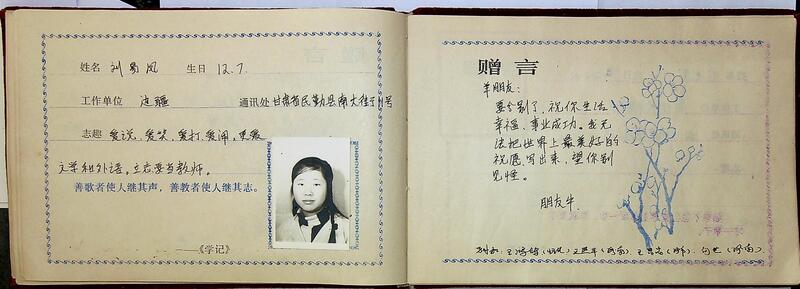 姓名 刘勇凤 生日 12.7.
工作单位 边疆 通讯处 甘肃省民勤县南大街 号
志趣 爱说、爱笑、爱打、爱闹、更爱
文学和外语，立志要当教师。
善歌者使人继其声，善教者使人继其志。
——《学记》
赠言
羊朋友：
要分别了，祝你生活
幸福、事业成功。我无
法把世界上最美好的
祝愿写出来，望你别
见怪。
朋友牛.